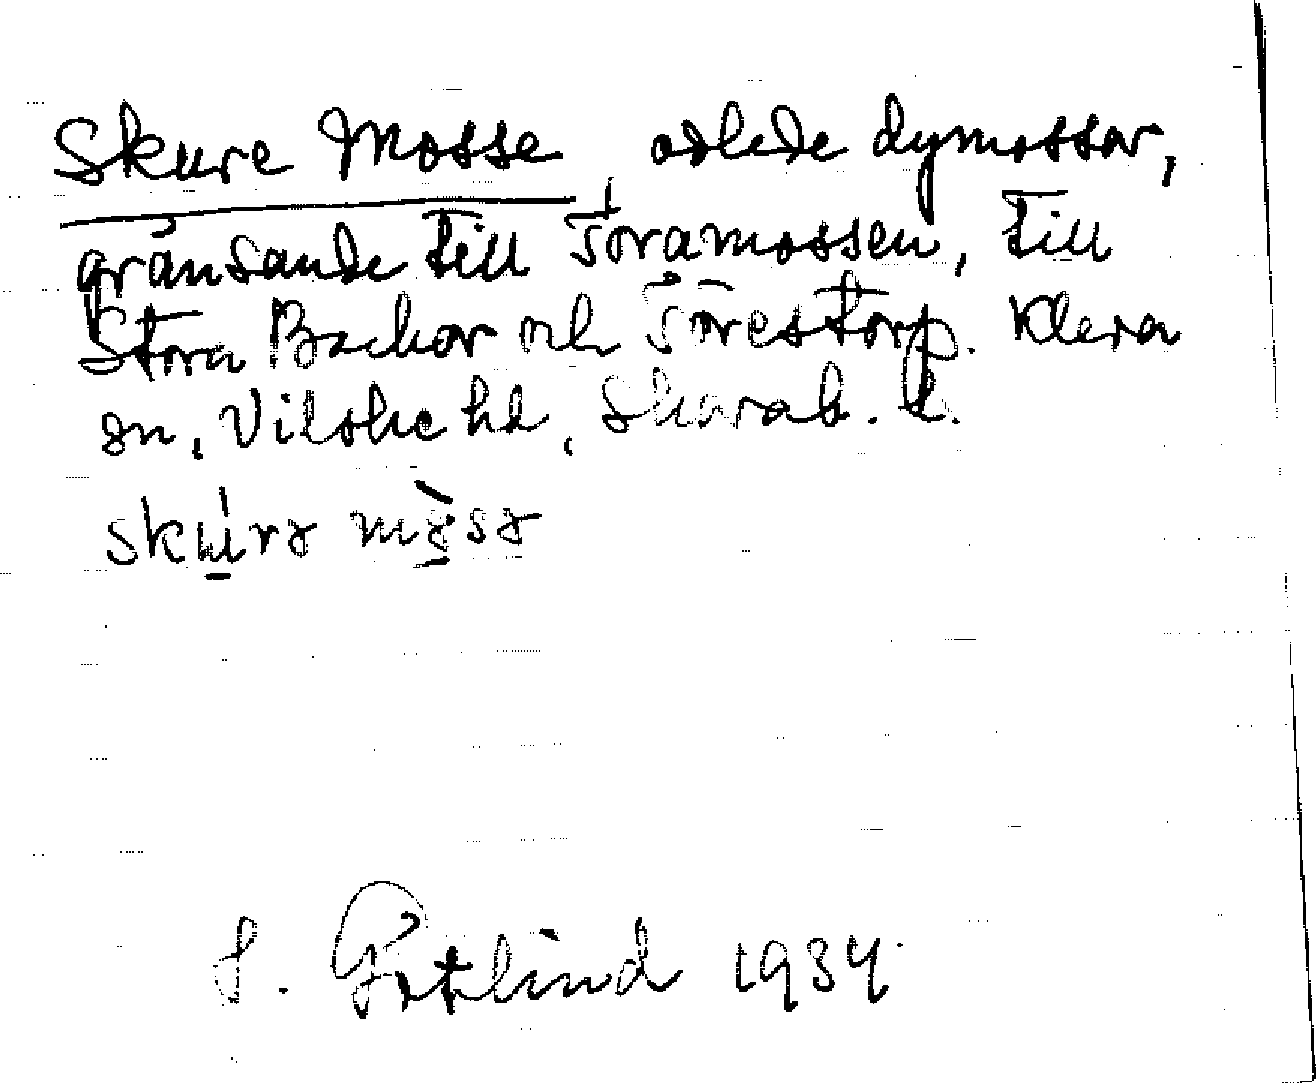 Skure Mosse, odlade dymossar,
gränsande till Toramossen, till
Stora Backor och Torestorp. Kleva
sn, Vilske hd, Skarab. l.
skúrə mòsə
J. Götlind 1934